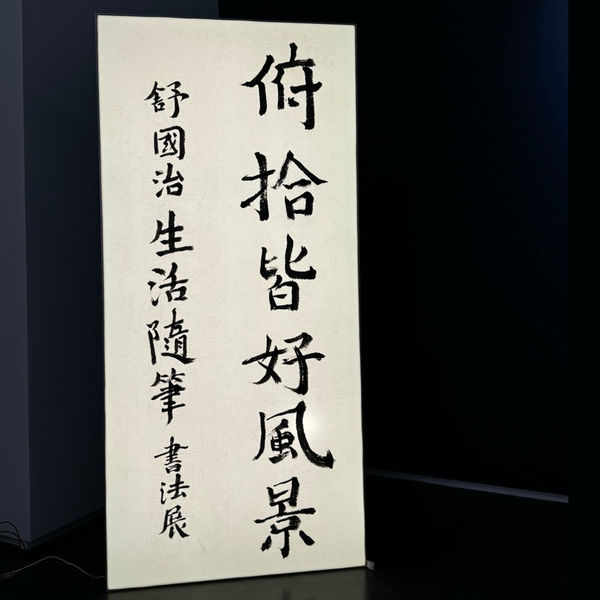 俯拾皆好風景
舒國治生活隨筆書法展